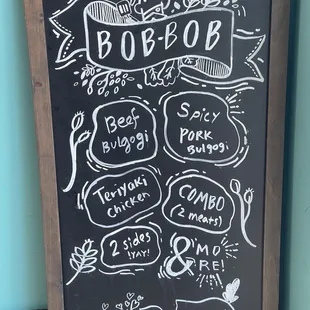 BOB-BOB
Beef
Bulgogi
Spicy
PORK
Bulgogi
Teriyaki
Chicken
COMBO
(2 meats)
2 sides
!YAY!
& 'MO
RE!